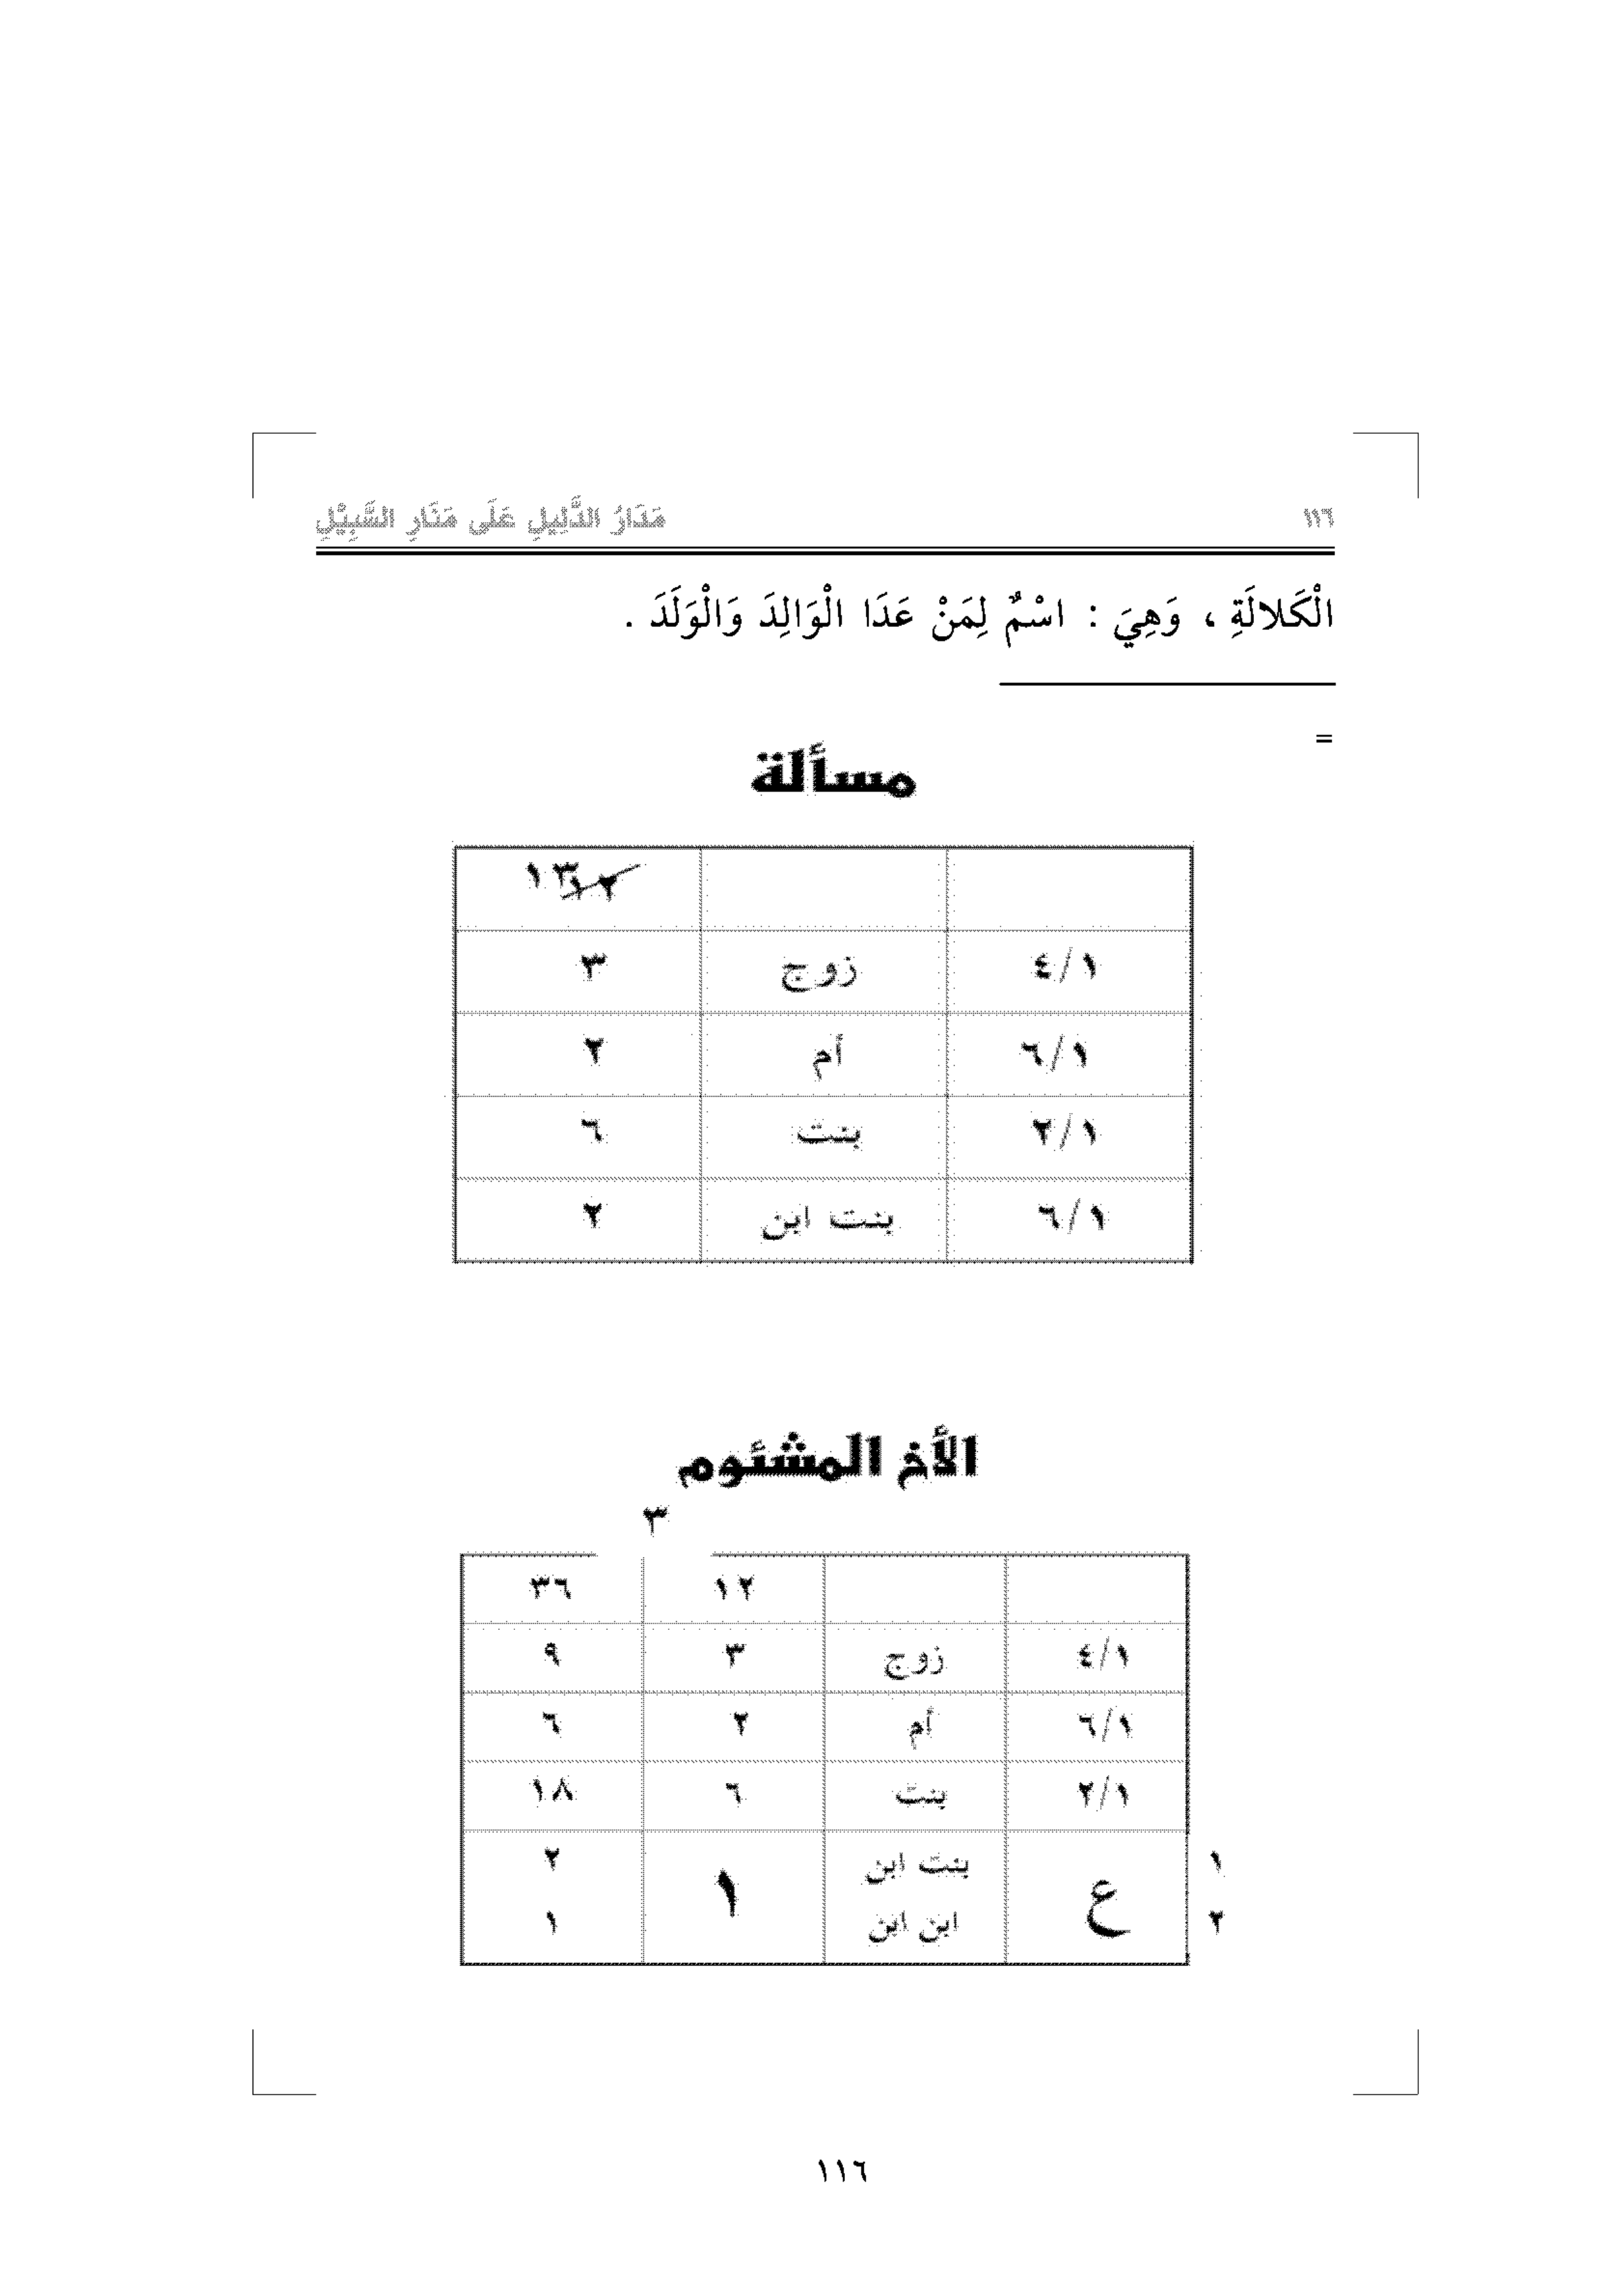 ١١٦ مَدَارُ الدَّلِيلِ عَلَى مَنَارِ السَّبِيْلِ
الْكَلالَةِ ، وَهِيَ : اسْمٌ لِمَنْ عَدَا الْوَالِدَ وَالْوَلَدَ .
=
مسألة
١٢ ١٣
١/٤ زوج ٣
١/٦ أم ٢
١/٢ بنت ٦
١/٦ بنت ابن ٢
الأخ المشئوم
٣
١٢ ٣٦
١/٤ زوج ٣ ٩
١/٦ أم ٢ ٦
١/٢ بنت ٦ ١٨
١ ع بنت ابن ١ ٢
٢ ابن ابن ١
١١٦